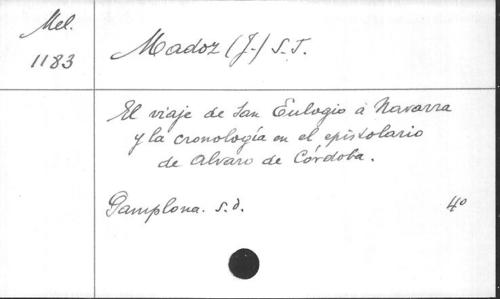 Mel.
1183
Madoz (J.) S.J.
El viaje de San Eulogio a Navarra
y la cronología en el epistolario
de Alvaro de Córdoba.
Pamplona. s.d.
4º